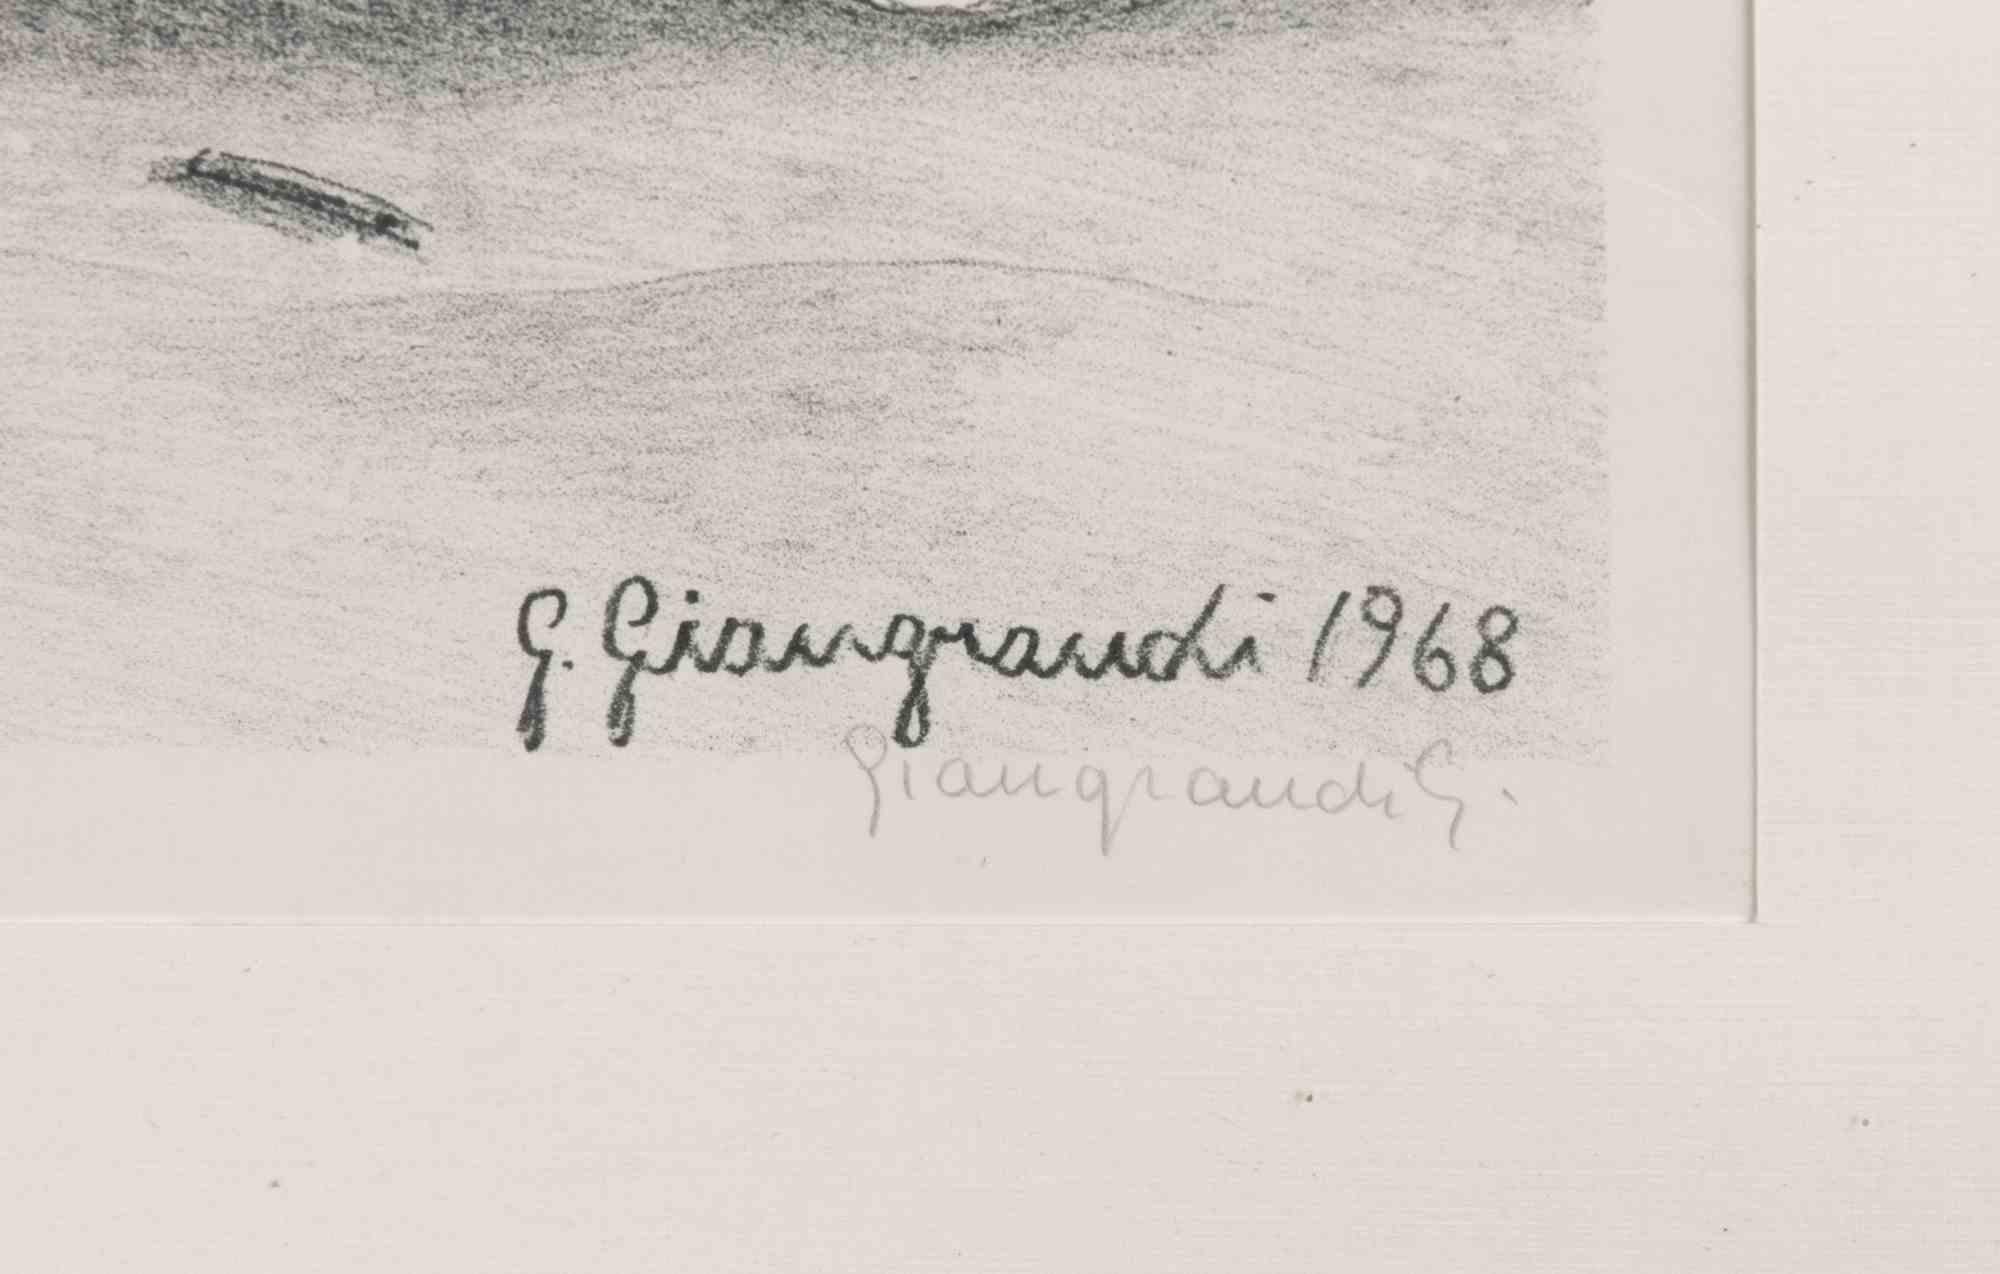 G. Giangrandi 1968
Giangrandi G.